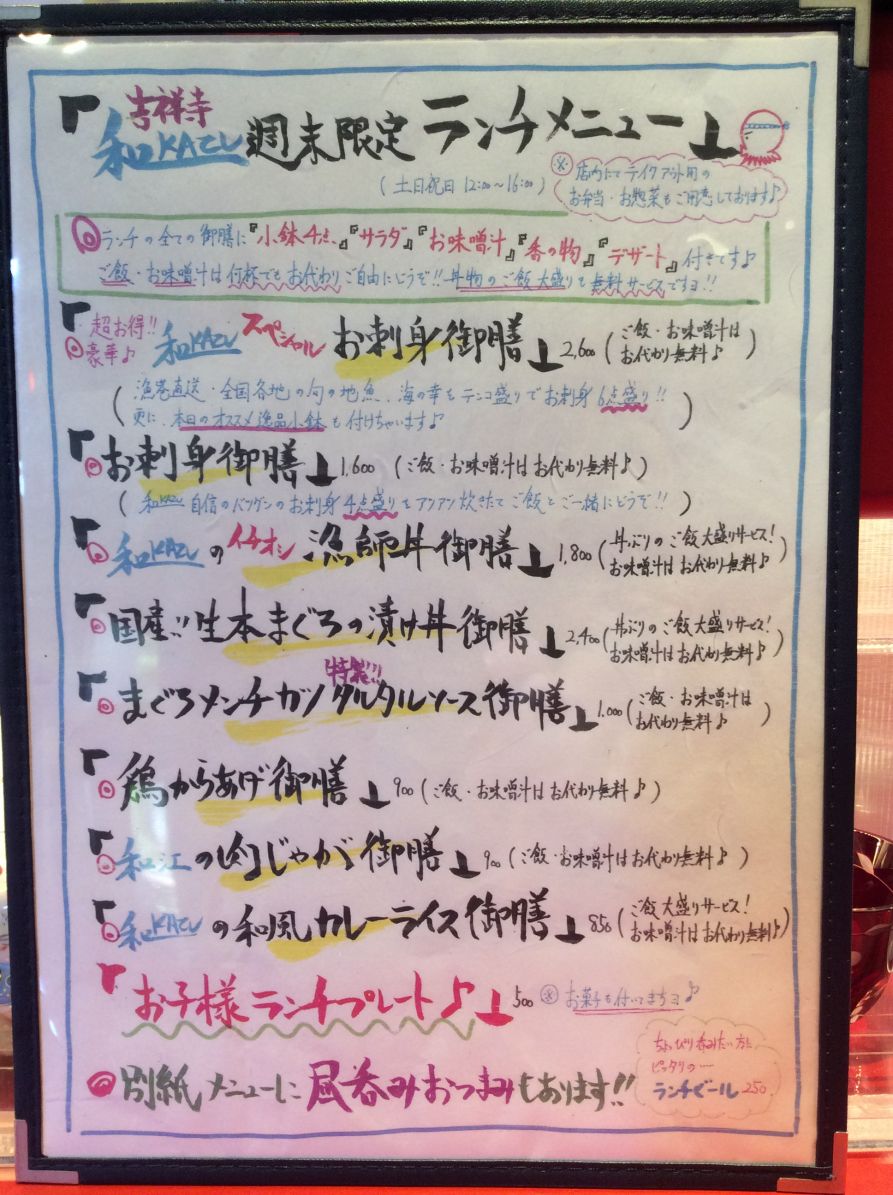 『吉祥寺 和KAZU 週末限定 ランチメニュー』
(土日祝日 12:00〜16:00)
※店内にてテイクアウト用の
お弁当・お惣菜もご用意しております♪
◎ランチの全ての御膳に『小鉢4点』『サラダ』『お味噌汁』『香の物』『デザート』付きです♪
ご飯・お味噌汁は何杯でもお代わりご自由にどうぞ!!丼物のご飯大盛りも無料サービスですヨ!!
超お得!!
豪華♪
『和KAZU スペシャル お刺身御膳』2,600(ご飯・お味噌汁は
お代わり無料♪)
(漁港直送・全国各地の旬の地魚、海の幸をテンコ盛りでお刺身6点盛り!!
更に、本日のオススメ逸品小鉢も付けちゃいます♪)
『お刺身御膳』1,600(ご飯・お味噌汁はお代わり無料♪)
(和KAZU 自信のバツグンのお刺身4点盛りをアツアツ炊きたてご飯とご一緒にどうぞ!!)
『和KAZUのイチオシ 漁師丼御膳』1,800(丼ぶりのご飯大盛りサービス!
お味噌汁はお代わり無料♪)
『国産!!生本まぐろの漬け丼御膳』2,400(丼ぶりのご飯大盛りサービス!
お味噌汁はお代わり無料♪)
『まぐろメンチカツ 特製!!! タルタルソース御膳』1,000(ご飯・お味噌汁は
お代わり無料♪)
『鶏からあげ御膳』900(ご飯・お味噌汁はお代わり無料♪)
『和江の肉じゃが御膳』900(ご飯・お味噌汁はお代わり無料♪)
『和KAZUの和風カレーライス御膳』850(ご飯大盛りサービス!
お味噌汁はお代わり無料♪)
『お子様ランチプレート♪』500 ※お菓子も付いてますヨ♪
◎別紙メニューに昼呑みおつまみもあります!!
ちょっぴり呑みたい方に
ピッタリの…
ランチビール 250